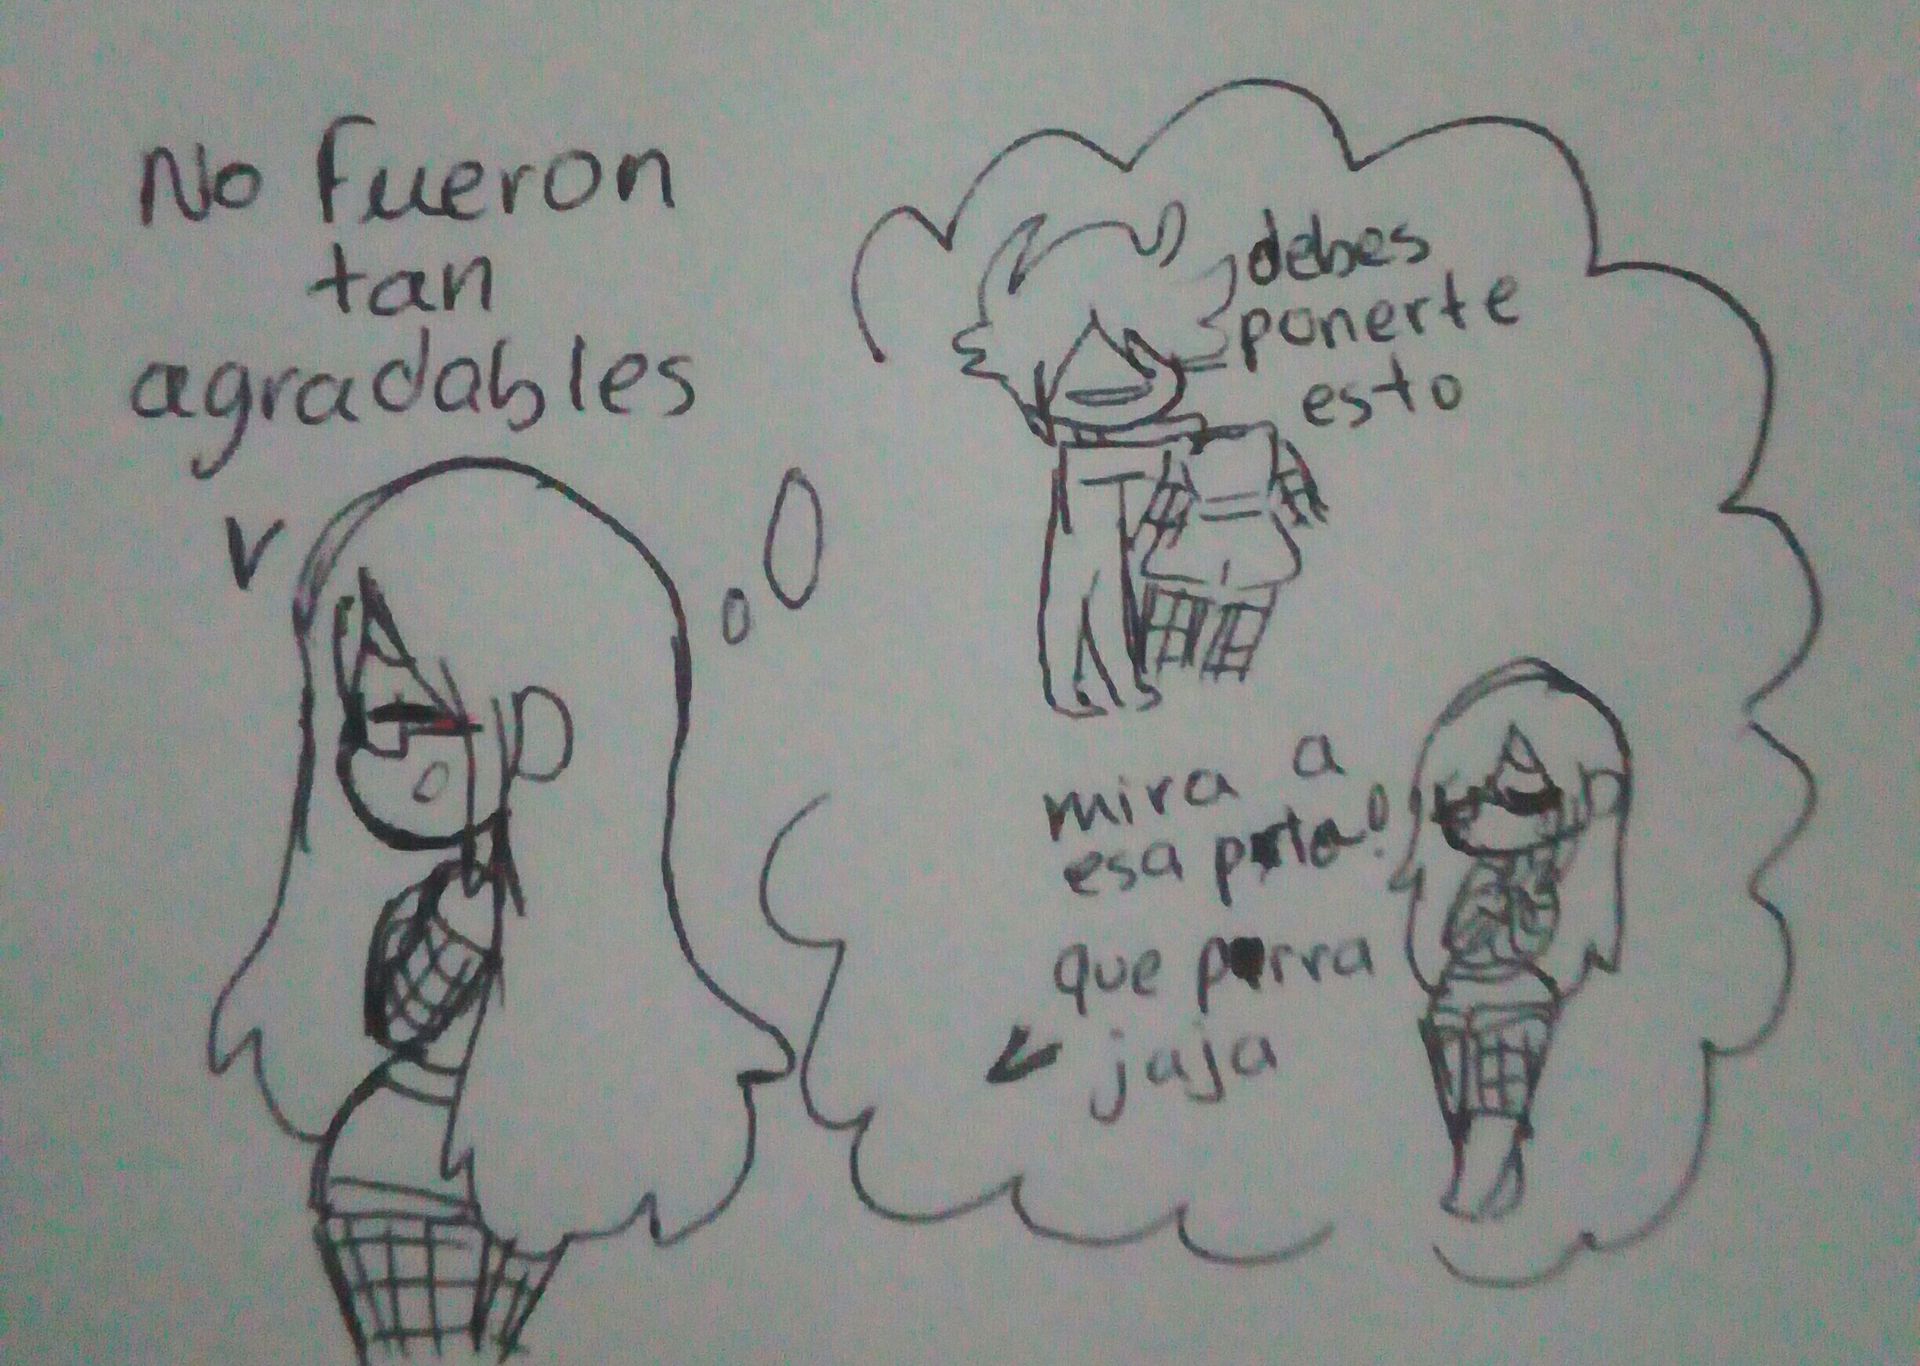 No fueron
tan
agradables
debes
ponerte
esto
mira a
esa puta!
que perra
jaja